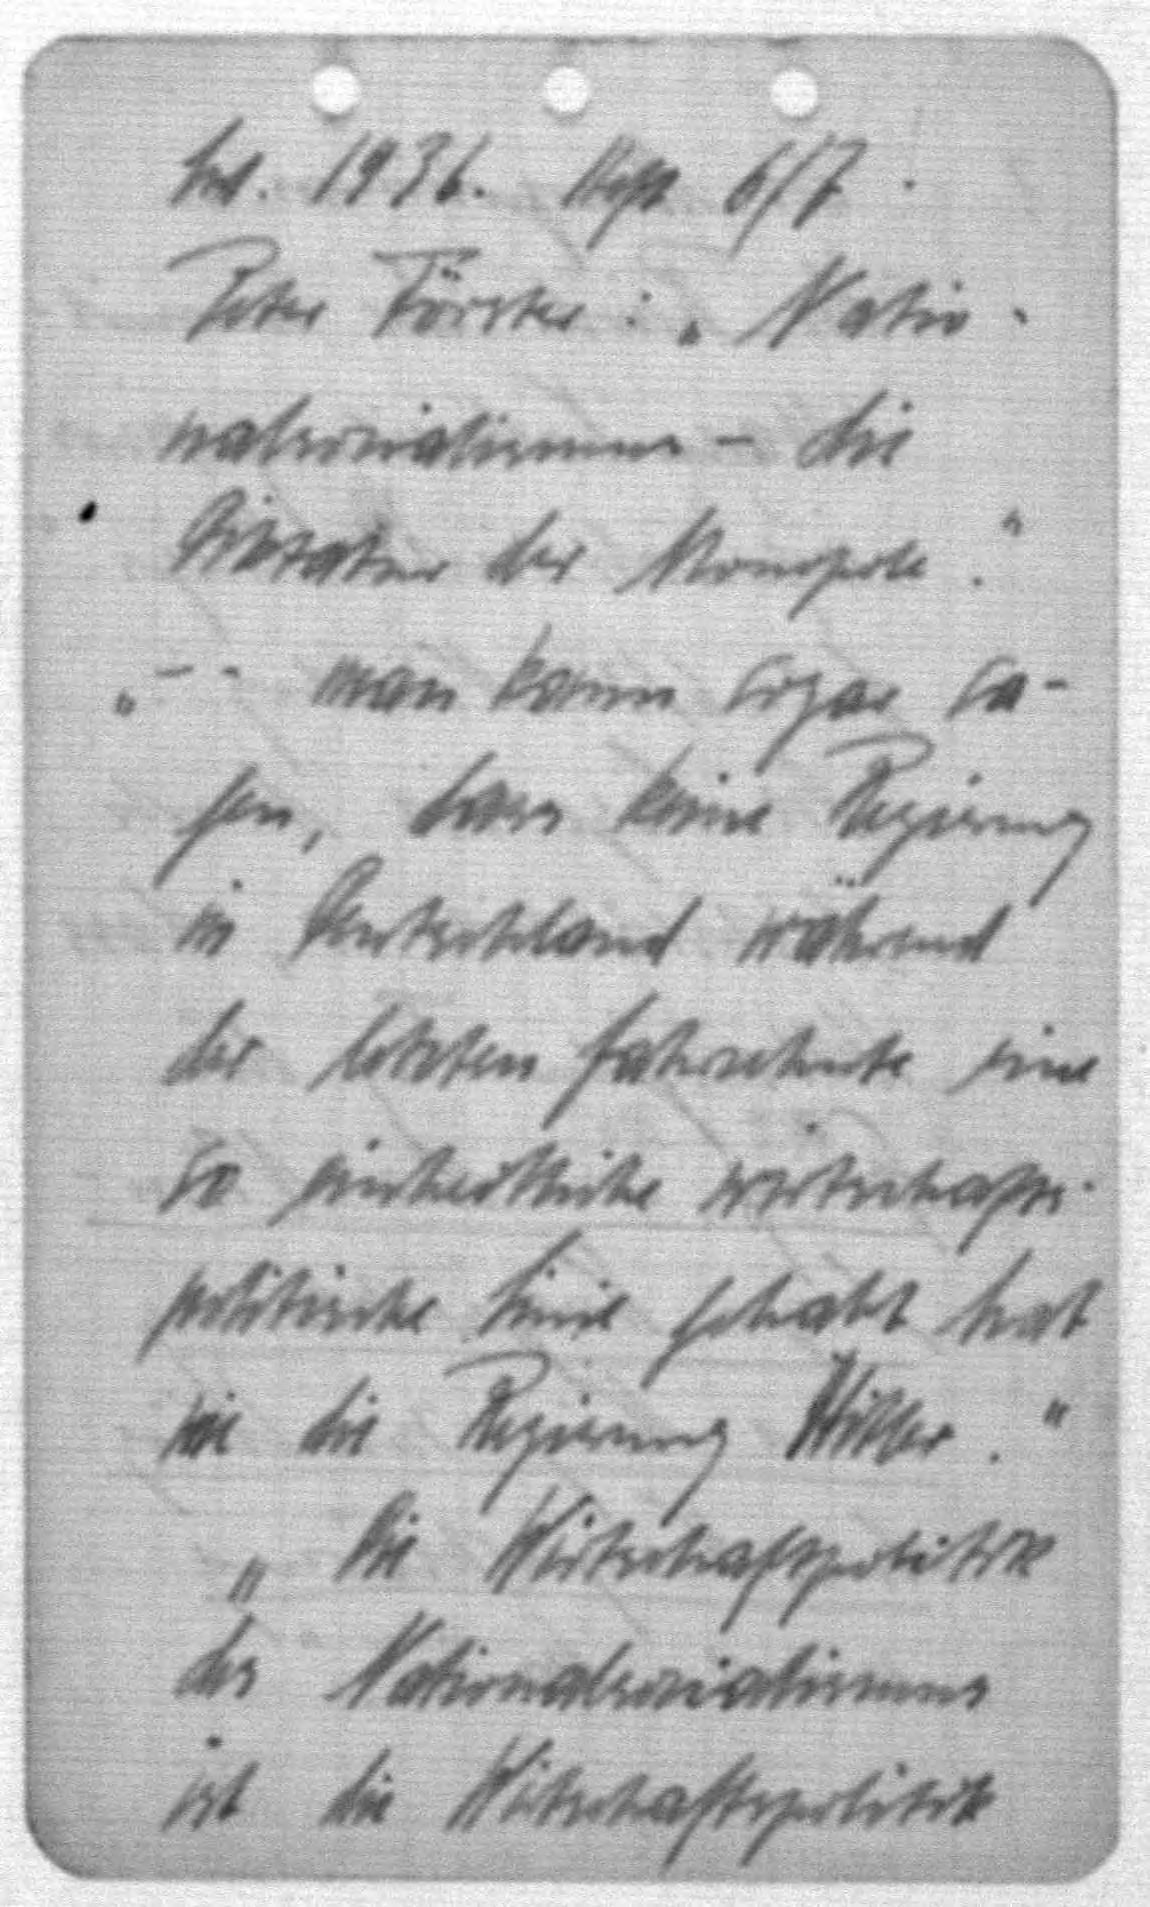 1936. Heft 6/7.
Peter Förster: „Natio-
nalsozialismus – die
Diktatur der Monopole."
„-- man kann sogar sa-
gen, dass keine Regierung
in Deutschland während
der letzten Jahrzehnte eine
so einheitliche wirtschafts-
politische Linie gehabt hat
wie die Regierung Hitler."
„Die Wirtschaftspolitik
des Nationalsozialismus
ist die Wirtschaftspolitik